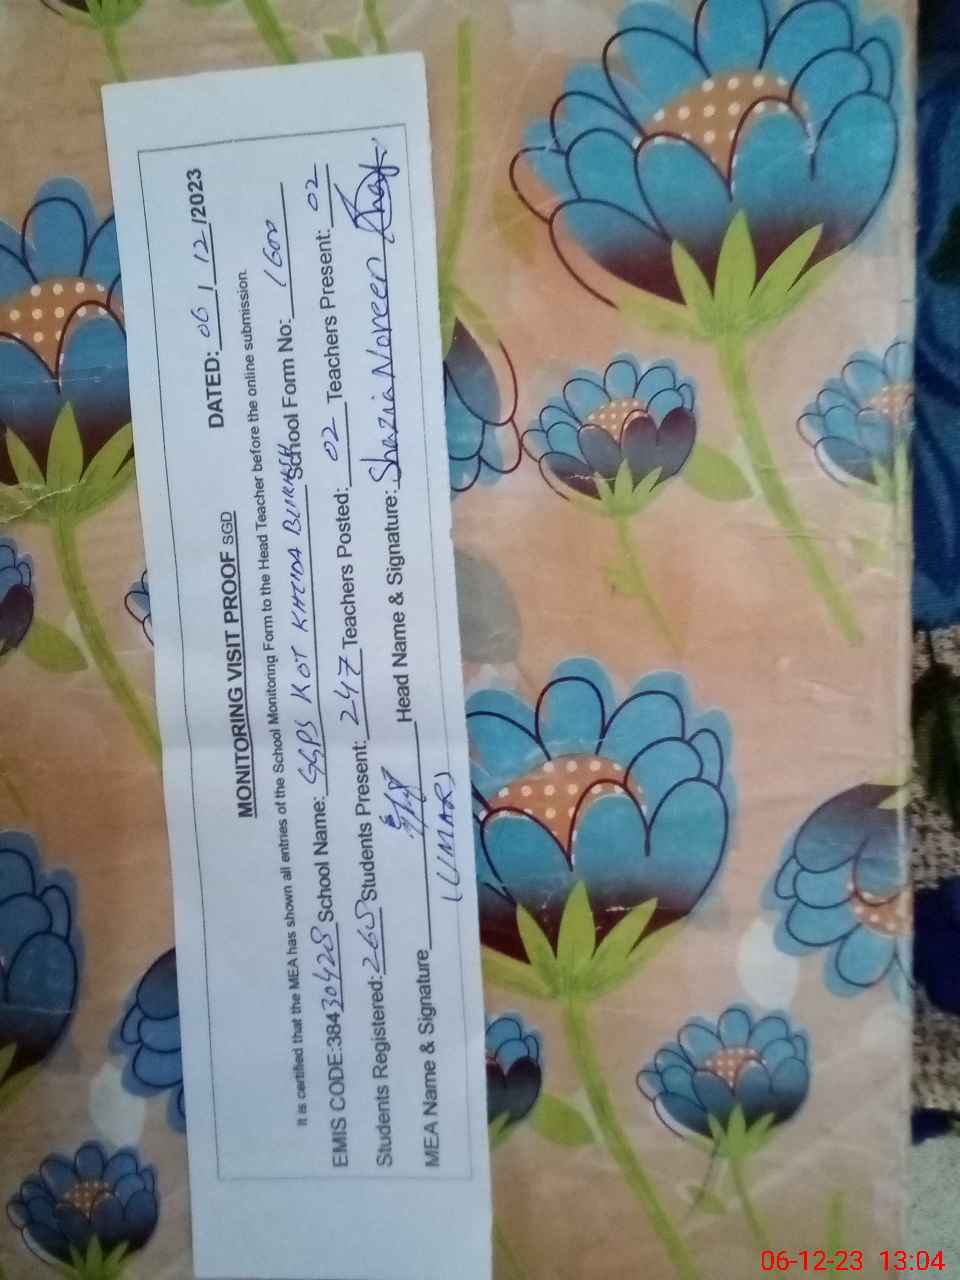 MONITORING VISIT PROOF SGD DATED: 06 / 12 /2023
It is certified that the MEA has shown all entries of the School Monitoring Form to the Head Teacher before the online submission.
EMIS CODE:38430428 School Name: GGPS KOT KHUDA School Form No:
Students Registered: 268 Students Present: 247 Teachers Posted: 02 Teachers Present: 02
MEA Name & Signature Head Name & Signature: Shazia Noreen
(UMAR)
06-12-23 13:04